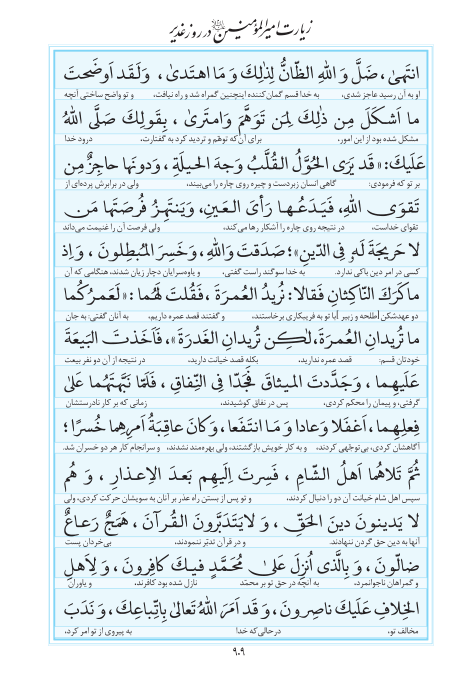 زیارت امیرالمؤمنین در روز غدیر
انتَهیٰ، ضَلَّ وَ اللّٰهِ الظّانُّ لِذٰلِكَ وَ مَا اهتَدیٰ، وَلَقَد اَوضَحتَ
او به آن رسید عاجز شدی، به خدا قسم گمان‌کننده اینچنین گمراه شد و راه نیافت، و تو واضح ساختی آنچه
ما اَشكَلَ مِن ذٰلِكَ لِمَن تَوَهَّمَ وَامتَریٰ، بِقَولِكَ صَلَّی اللّٰهُ
مشکل شده بود از این امور، برای آن‌که توهّم و تردید کرد به گفتارت، درود خدا
عَلَیكَ: «قَد یَرَی الحُوَّلُ القُلَّبُ وَجهَ الحیلَةِ، وَدونَها حاجِزٌ مِن
بر تو که فرمودی: گاهی انسان زبردست و چیره روی چاره را می‌بیند، ولی در برابرش پرده‌ای از
تَقوَی اللّٰهِ، فَیَدَعُها رَأیَ العَینِ، وَیَنتَهِزُ فُرصَتَها مَن
تقوای خداست، در نتیجه روی چاره را آشکار رها می‌کند، ولی فرصت آن را غنیمت می‌داند
لا حَریجَةَ لَهُ فِی الدّینِ»؛ صَدَقتَ وَاللّٰهِ، وَخَسِرَ المُبطِلونَ، وَ اِذ
کسی در امر دین باکی ندارد. به خدا سوگند راست گفتی، و یاوه‌سرایان دچار زیان شدند، هنگامی که آن
ماكَرَكَ النّاكِثانِ فَقالا: نُریدُ العُمرَةَ، فَقُلتَ لَهُما: «لَعَمرُكُما
دو عهدشکن [طلحه و زبیر] با تو به فریبکاری برخاستند، و گفتند قصد عمره داریم، به آنان گفتی: به جان
ما تُریدانِ العُمرَةَ، لٰكِن تُریدانِ الغَدرَةَ»، فَاَخَذتَ البَیعَةَ
خودتان قسم: قصد عمره ندارید، بکله قصد خیانت دارید، در نتیجه از آن دو نفر بیعت
عَلَیهِما، وَجَدَّدتَ المیثاقَ فَجَدّا فِی النِّفاقِ، فَلَمّا نَبَّهتَهُما عَلیٰ
گرفتی، و پیمان را محکم کردی، پس در نفاق کوشیدند، زمانی که بر کار نادرستشان
فِعلِهِما، اَغفَلا وَعادا وَ مَا انتَفَعا، وَكانَ عاقِبَةُ اَمرِهِما خُسرًا؛
آگاهشان کردی، بی‌توجهی کردند، و به کار خویش بازگشتند، ولی بهره‌مند نشدند، و سرانجام کار هر دو خسران شد.
ثُمَّ تَلاهُما اَهلُ الشّامِ، فَسِرتَ اِلَیهِم بَعدَ الاِعذارِ، وَ هُم
سپس اهل شام خیانت آن دو را دنبال کردند، و تو پس از بستن راه عذر بر آنان به سویشان حرکت کردی، ولی
لا یَدینونَ دینَ الحَقِّ، وَ لایَتَدَبَّرونَ القُرآنَ، هَمَجٌ رَعاعٌ
آنها به دین حق گردن ننهادند. و در قرآن تدبّر ننمودند، بی‌خردان پست
ضالّونَ، وَ بِالَّذی اُنزِلَ عَلیٰ مُحَمَّدٍ فیكَ كافِرونَ، وَ لِاَهلِ
و گمراهان ناجوانمرد، به آنچه در حق تو بر محمّد نازل شده بود کافرند، و یاوران
الخِلافِ عَلَیكَ ناصِرونَ، وَ قَد اَمَرَ اللّٰهُ تَعالیٰ بِاتِّباعِكَ، وَ نَدَبَ
مخالف تو، درحالی‌که خدا به پیروی از تو امر کرد،
۹۰۹